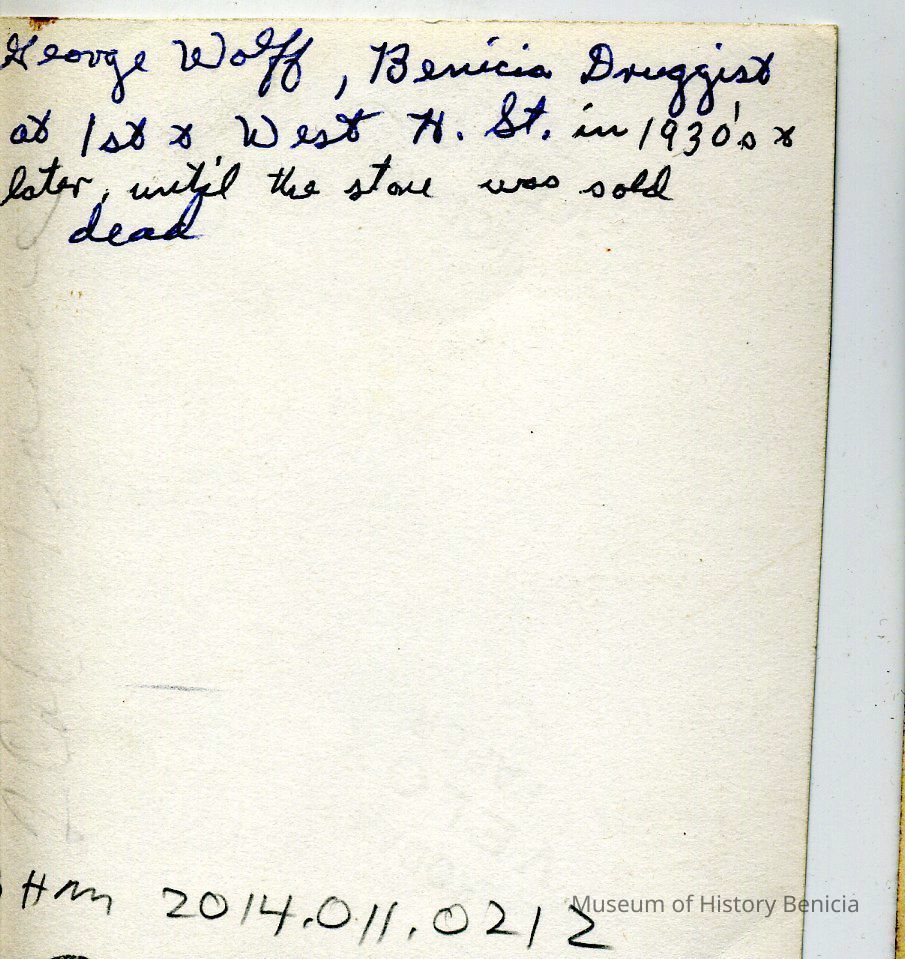 George Wolff, Benicia Druggist
at 1st & West H. St. in 1930's &
later, until the store was sold
dead
HM 2014.011.0212
Museum of History Benicia